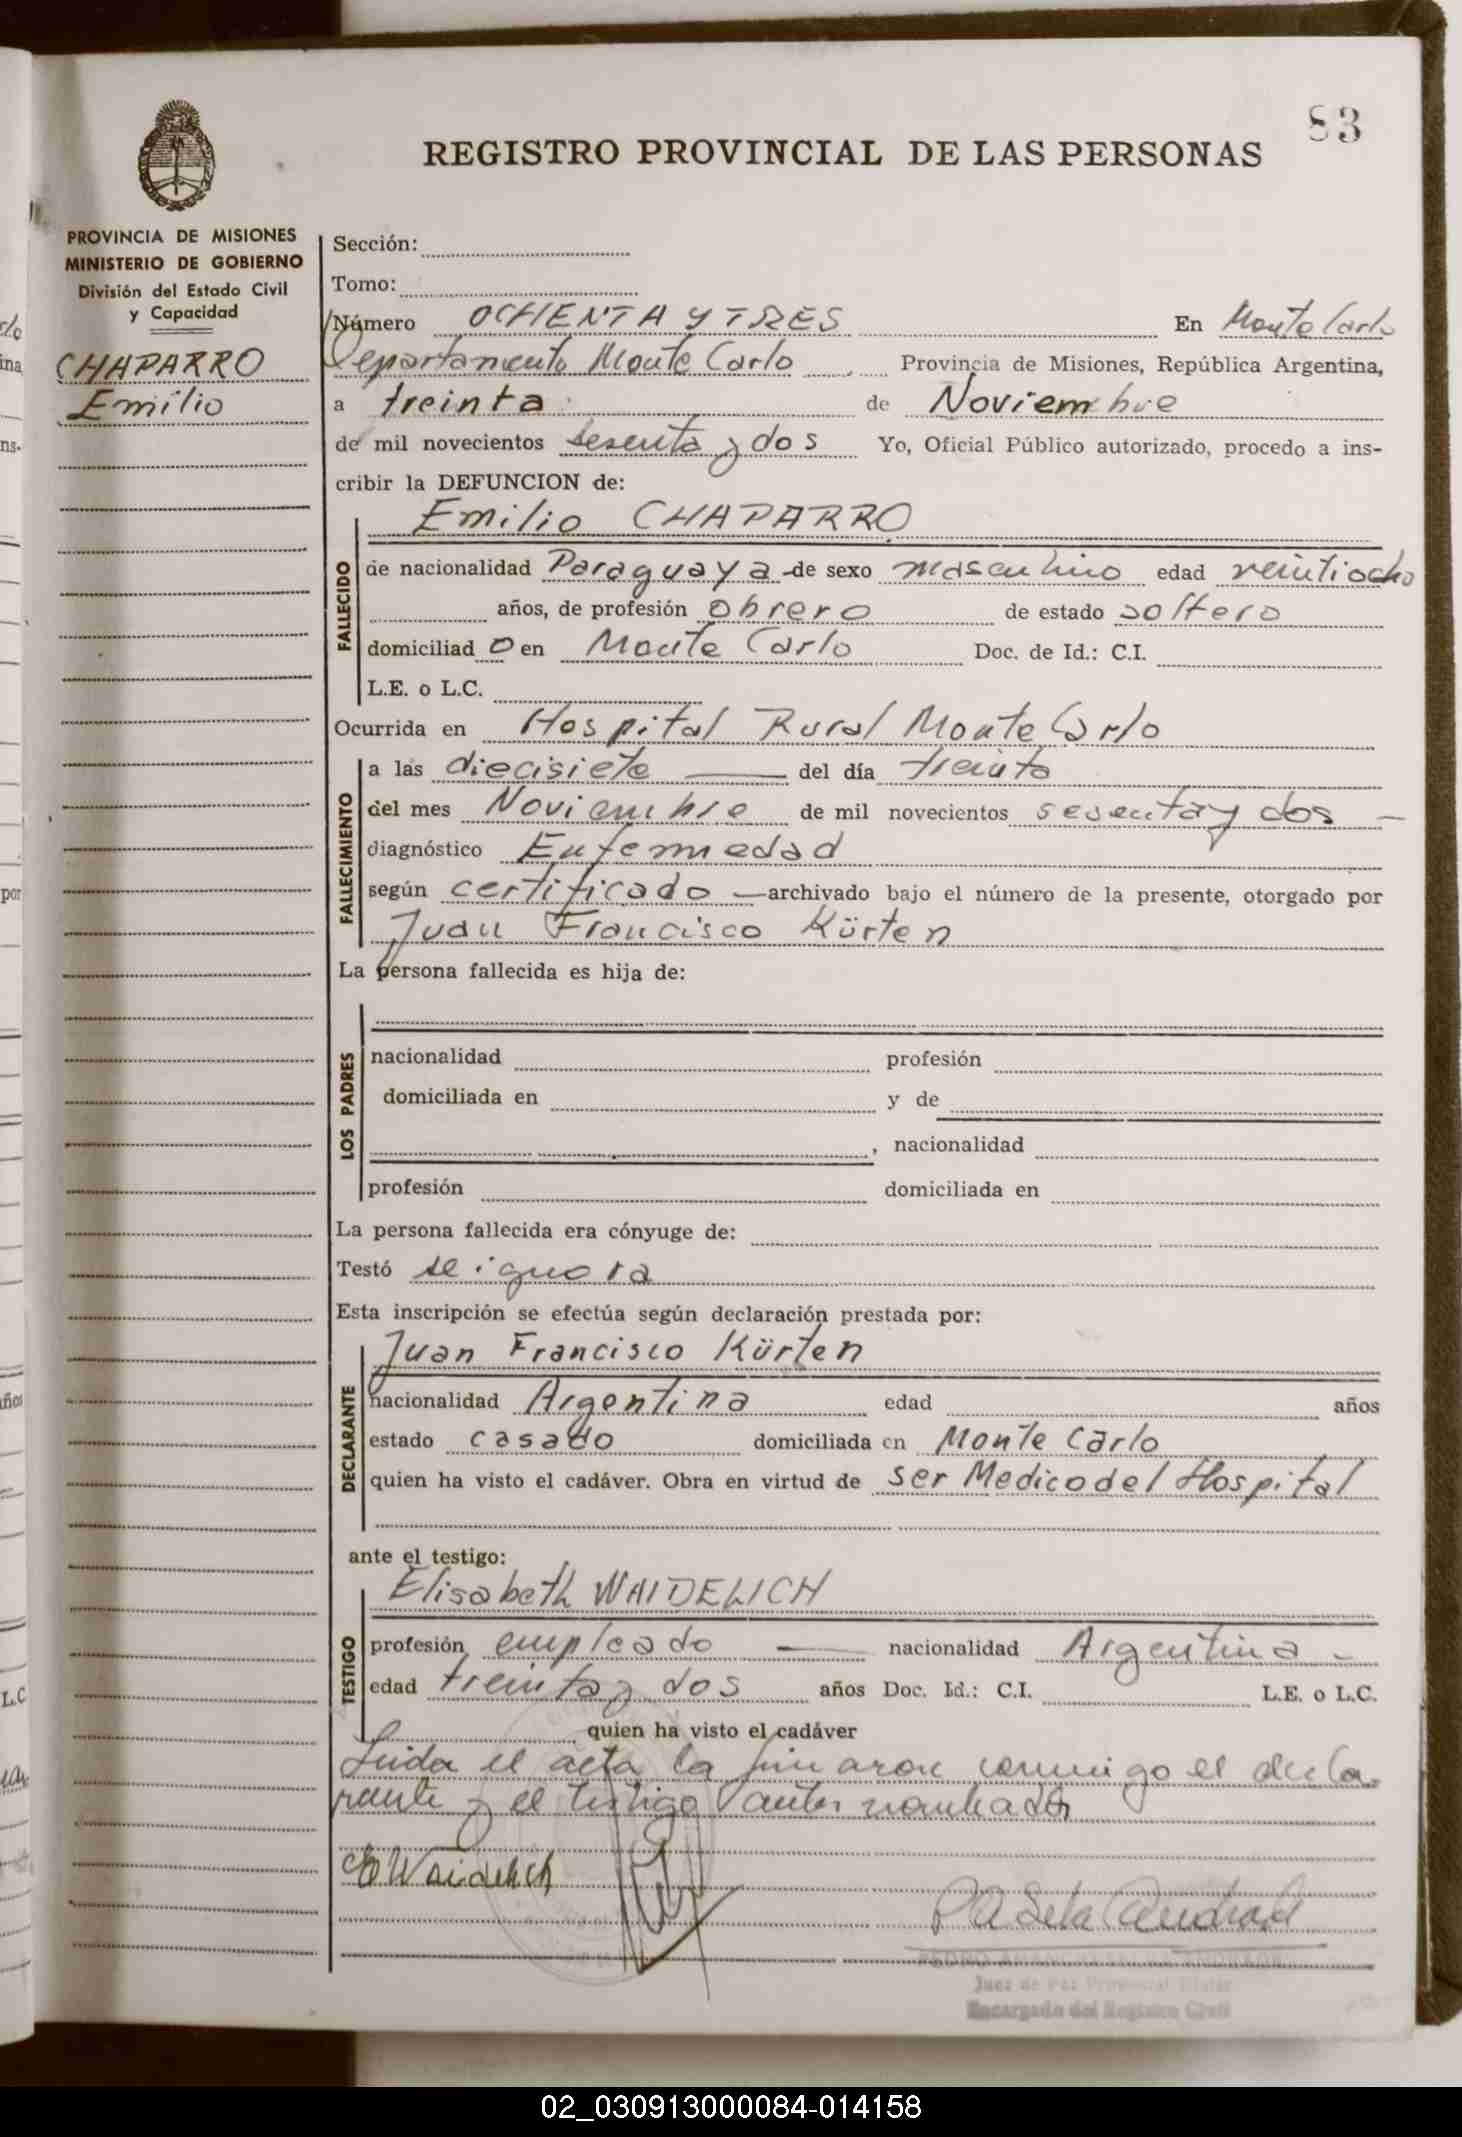 83
REGISTRO PROVINCIAL DE LAS PERSONAS
PROVINCIA DE MISIONES
MINISTERIO DE GOBIERNO
División del Estado Civil
y Capacidad
CHAPARRO
Emilio
Sección:
Tomo:
Número OCHENTA Y TRES En Monte Carlo
Departamento Monte Carlo Provincia de Misiones, República Argentina,
a treinta de Noviembre
de mil novecientos sesenta y dos Yo, Oficial Público autorizado, procedo a ins-
cribir la DEFUNCION de:
Emilio CHAPARRO
FALLECIDO
de nacionalidad Paraguaya de sexo masculino edad veintiocho
años, de profesión obrero de estado soltero
domiciliad o en Monte Carlo Doc. de Id.: C.I.
L.E. o L.C.
Ocurrida en Hospital Rural Monte Carlo
FALLECIMIENTO
a las diecisiete del día treinta
del mes Noviembre de mil novecientos sesenta y dos -
diagnóstico Enfermedad
según certificado — archivado bajo el número de la presente, otorgado por
Juan Francisco Kürten
La persona fallecida es hija de:
LOS PADRES
nacionalidad profesión
domiciliada en y de
, nacionalidad
profesión domiciliada en
La persona fallecida era cónyuge de:
Testó se ignora
Esta inscripción se efectúa según declaración prestada por:
Juan Francisco Kürten
DECLARANTE
nacionalidad Argentina edad años
estado casado domiciliada en Monte Carlo
quien ha visto el cadáver. Obra en virtud de ser Medico del Hospital
ante el testigo:
Elisabeth WAIDELICH
TESTIGO
profesión empleado — nacionalidad Argentina -
edad treinta y dos años Doc. Id.: C.I. L.E. o L.C.
quien ha visto el cadáver
Leida el acta la firmaron conmigo el decla-
rante y el testigo antes nombrados
E Waidelich
Juez de Paz Provincial Titular
Encargado del Registro Civil
02_030913000084-014158